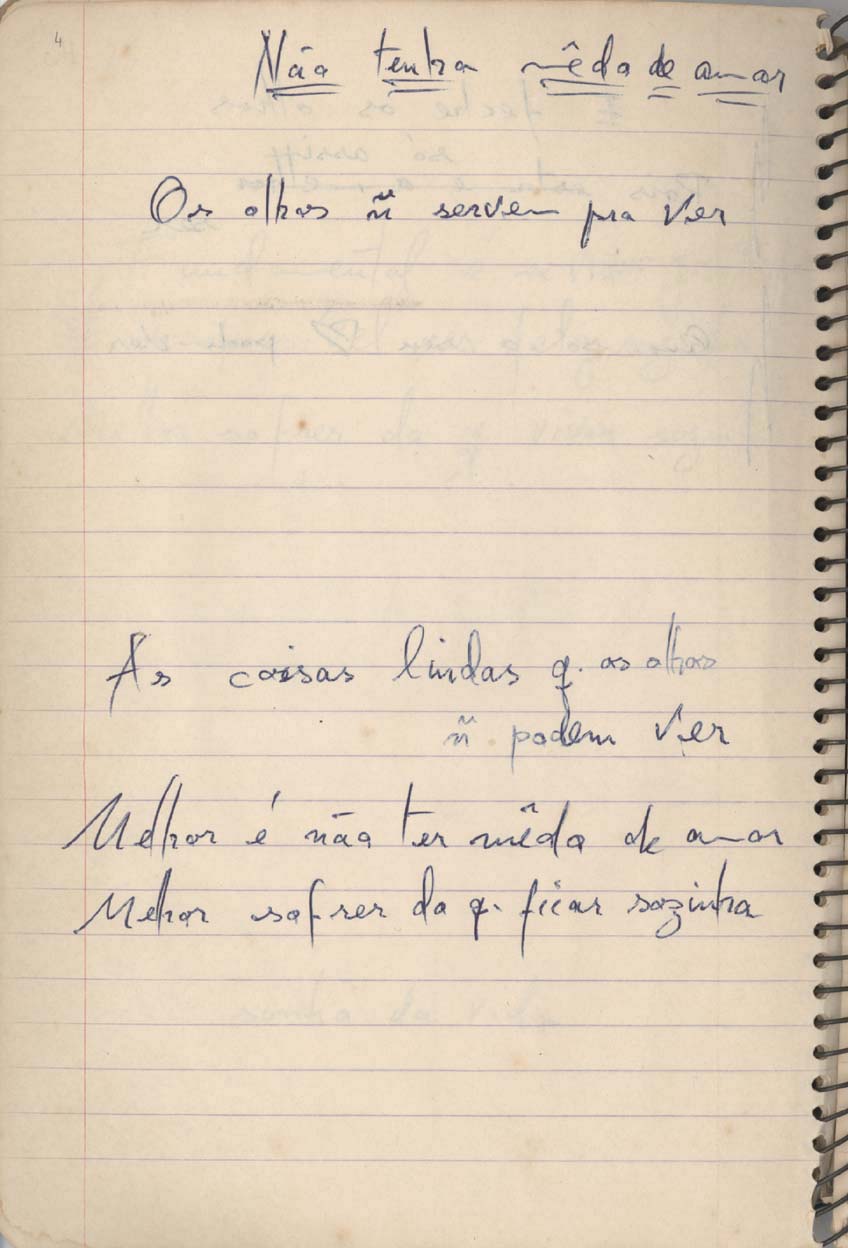 4
Não tenha mêdo de amar
Os olhos ñ servem pra ver
As coisas lindas q. os olhos
ñ podem ver
Melhor é não ter mêdo de amar
Melhor sofrer do q. ficar sozinho